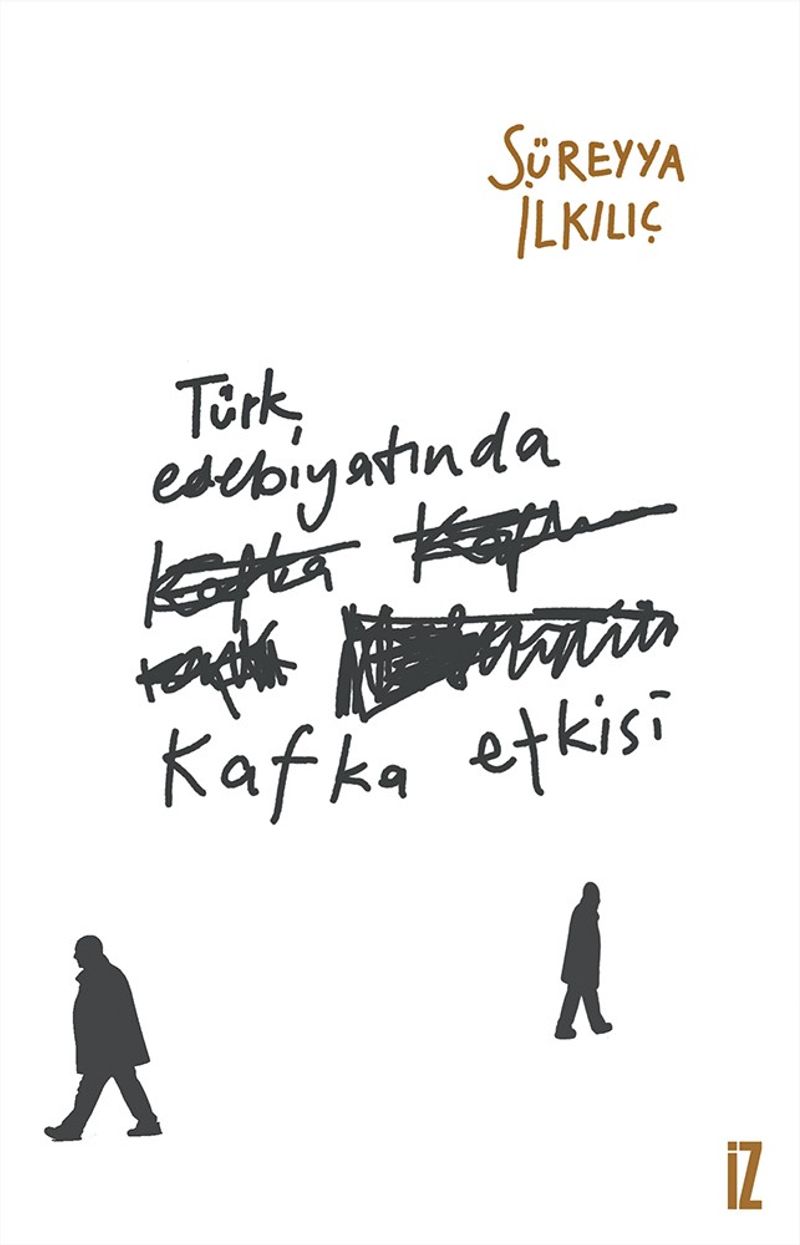 SÜREYYA
İLKILIÇ
Türk
edebiyatında
Kafka Kafka
Kafka etkisi
İZ